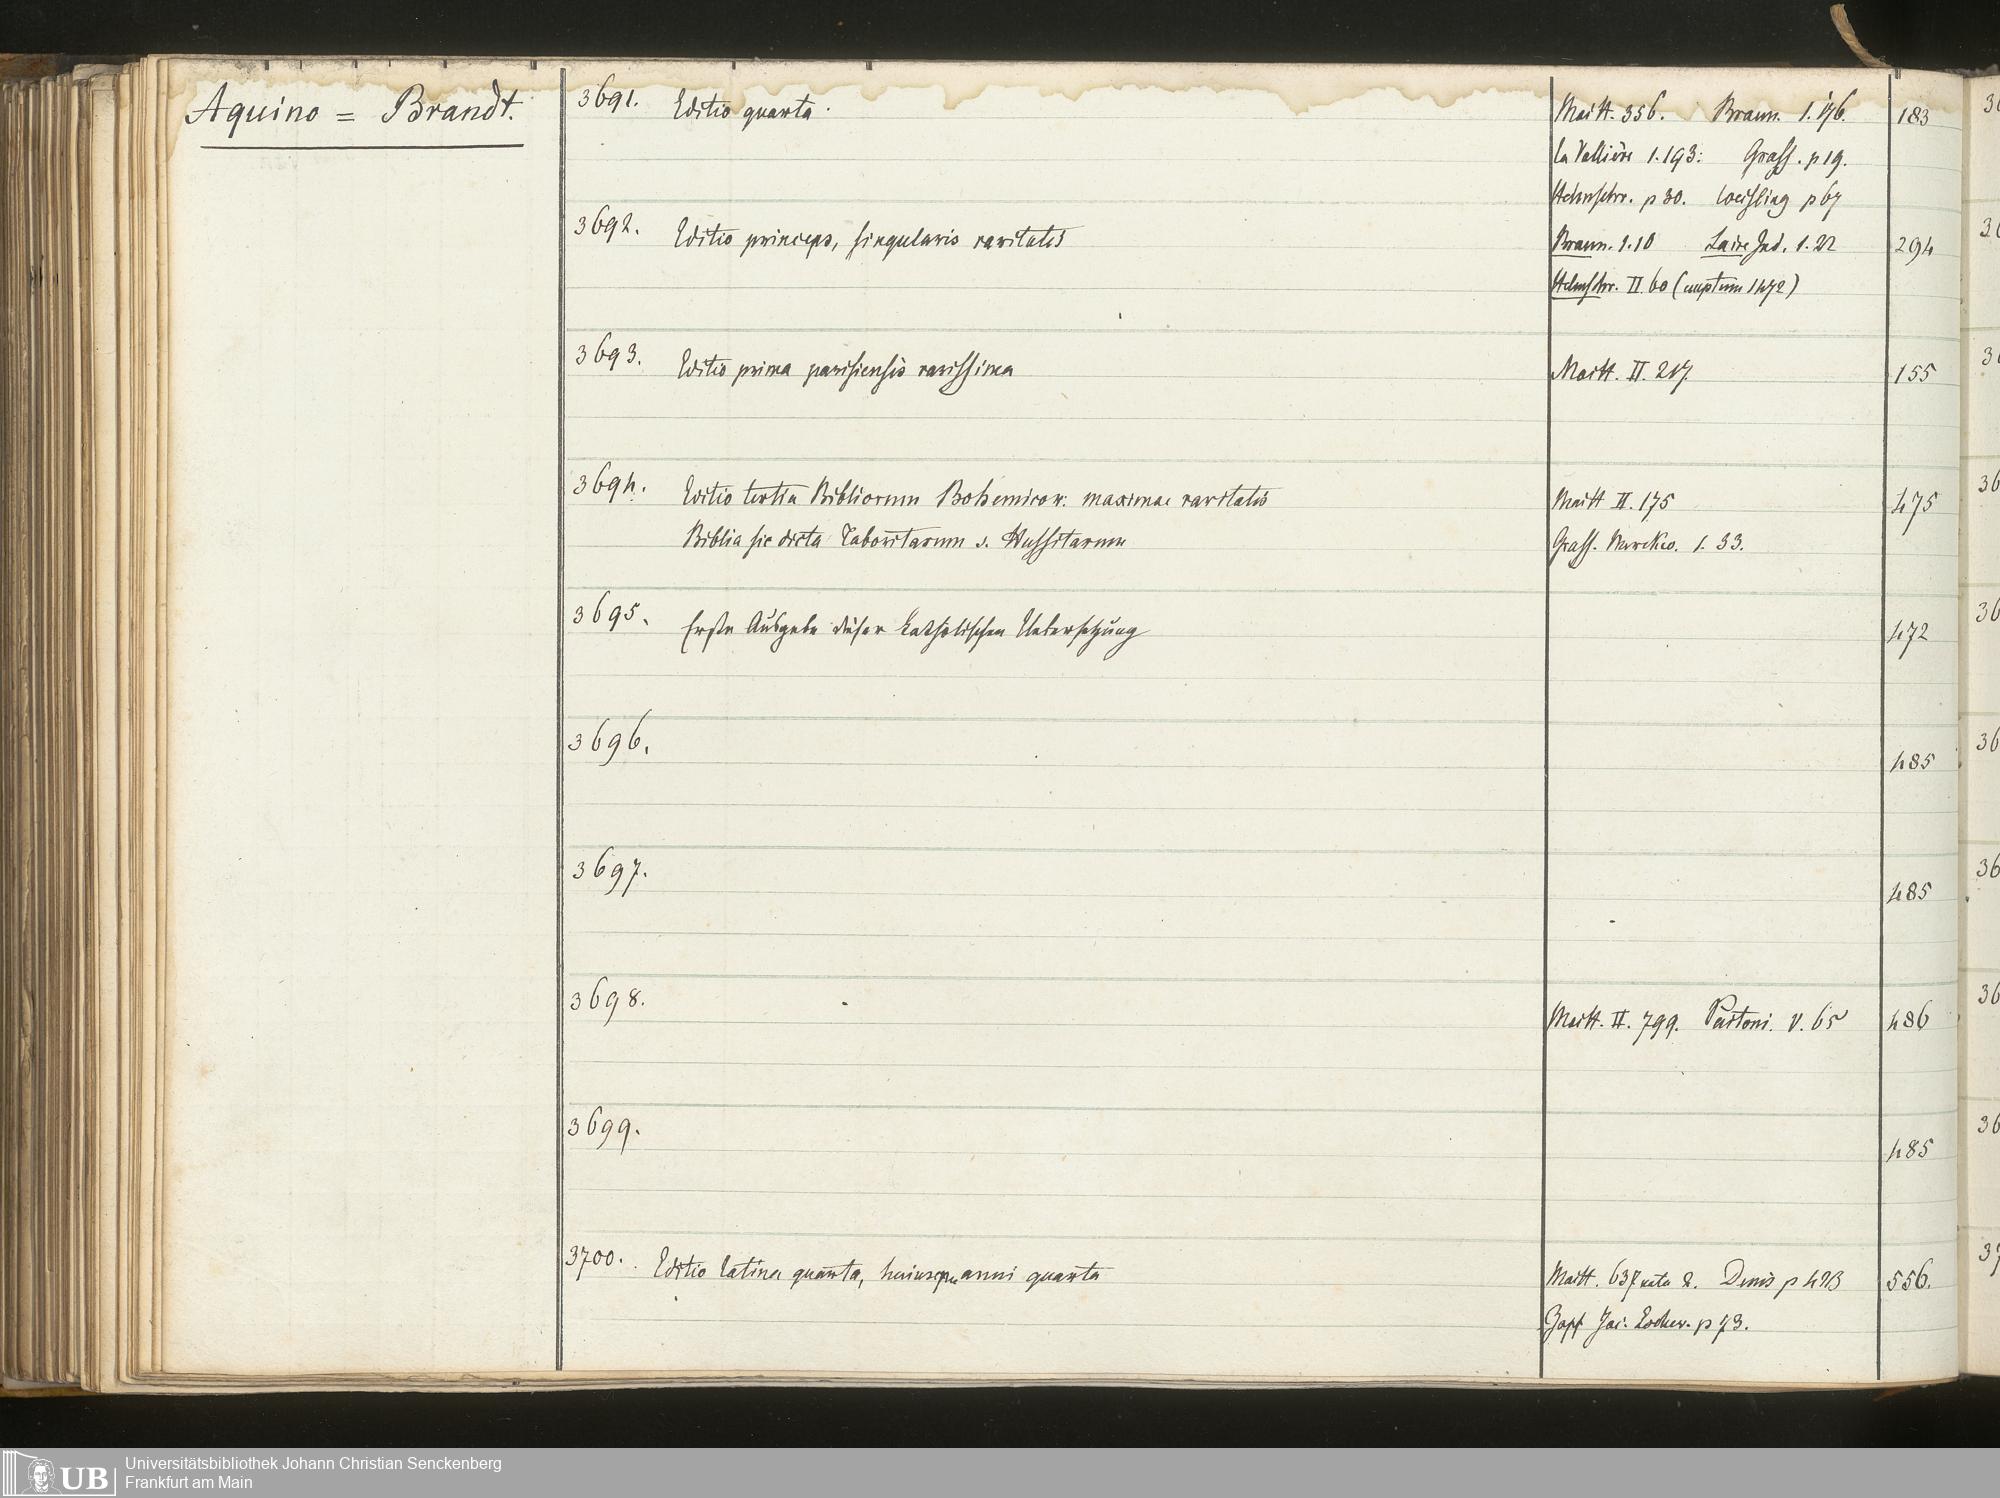 Aquino = Brandt.
3691. Editio quarta. Maitt. 356. Braun. 1.176. 183
la Vallière 1.193: Grass. p 19.
Helmschr. p 30. p 67
3692. Editio princeps, singularis raritatis Braun. 1.10 Laire Ind. 1.22 294
Helmschr. II. 60 (emptum 1472)
3693. Editio prima parisiensis rarissima Maitt. II. 217. 155
3694. Editio tertia Bibliorum Bohemicor: maximae raritatis Maitt II. 175 475
Biblia sic dicta Taboritarum s. Hussitarum Grass. 1. 33.
3695. Erste Ausgabe dieser katholischen Uebersetzung 472
3696. 485
3697. 485
3698. Maitt. II. 799. Paitoni. V. 65 486
3699. 485
3700. Editio latina quarta, huiusque anni quarta Maitt. 637 nota 2. Denis p 423 556.
Zapf Jac. Locher. p 73.
36
36
36
36
36
36
36
36
36
37
UB
Universitätsbibliothek Johann Christian Senckenberg
Frankfurt am Main